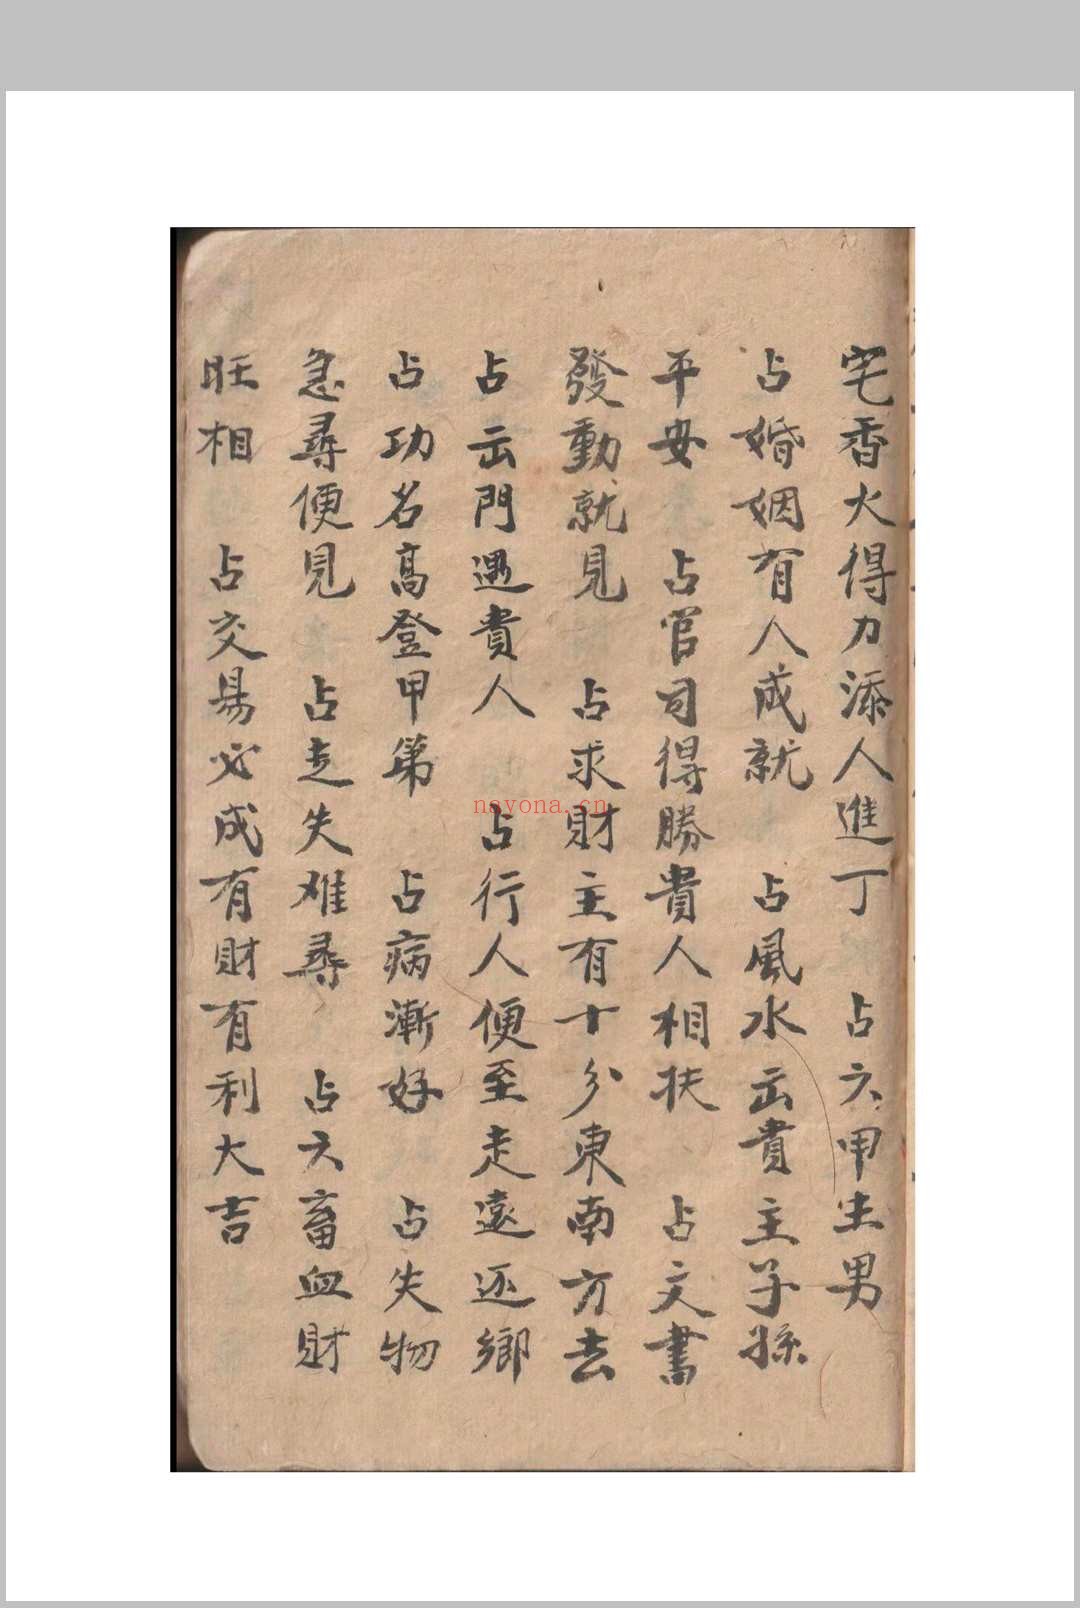 宅香火得力添人進丁　占六甲生男
占婚姻有人成就　占風水出貴主子孫
平安　占官司得勝貴人相扶　占文書
發動就見　占求財主有十分東南方去
占出門遇貴人　占行人便至走遠还鄉
占功名高登甲第　占病漸好　占失物
急尋便見　占走失难尋　占六畜血財
旺相　占交易必成有財有利大吉
nayona.cn